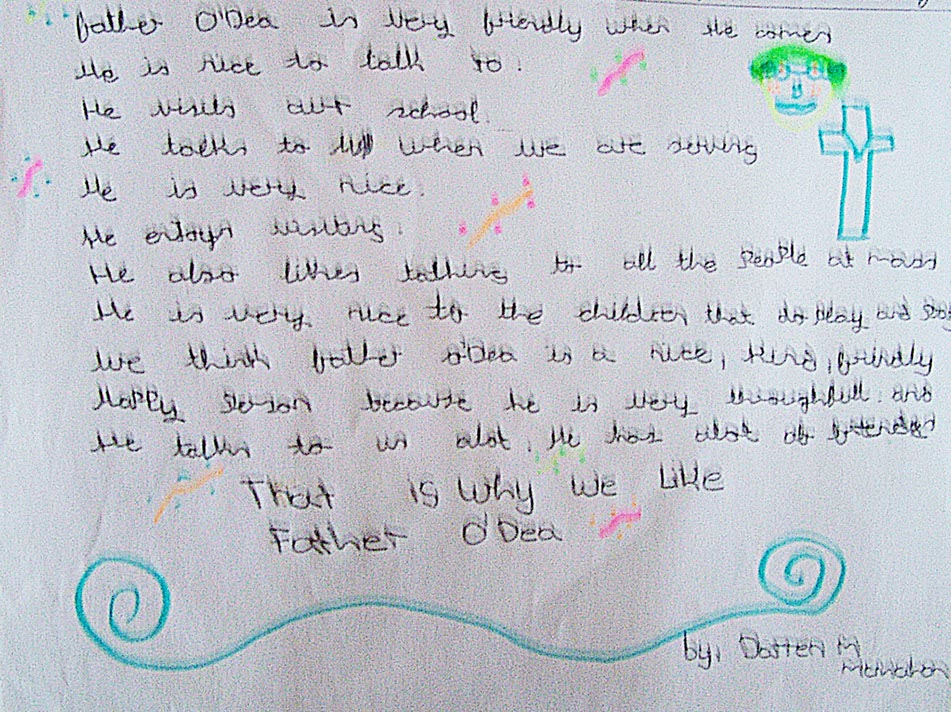 Father O'Dea is very friendly when He comes
He is nice to talk to.
He visits our school.
He talks to us when we are serving
He is very nice.
He enjoys visiting.
He also likes talking to all the people at mass
He is very nice to the children that do play and
We think father O'Dea is a nice, kind, frindly
Happy person because he is very thoughfull. and
He talks to us alot. He has alot of friends
That is Why We Like
Father O'Dea
by, Darren M
Mcmahon